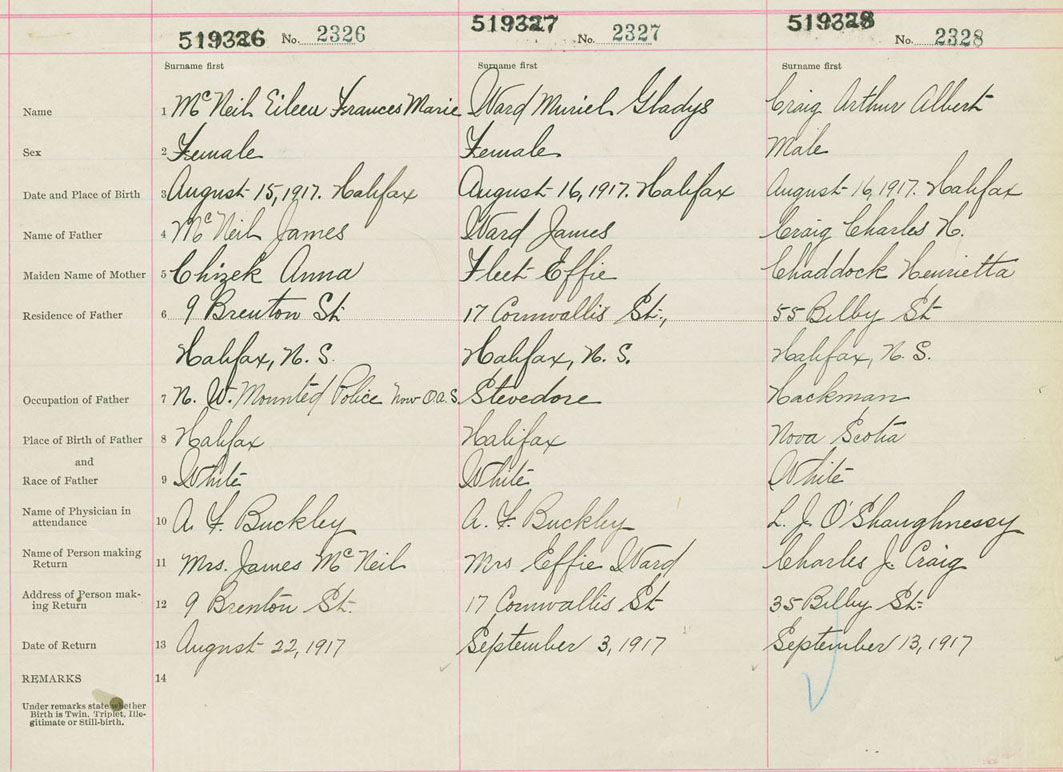 519326 No. 2326 519327 No. 2327 519328 No. 2328
Surname first Surname first Surname first
Name 1 McNeil Eileen Frances Marie Ward Muriel Gladys Craig Arthur Albert
Sex 2 Female Female Male
Date and Place of Birth 3 August 15, 1917. Halifax August 16, 1917. Halifax August 16, 1917. Halifax
Name of Father 4 McNeil James Ward James Craig Charles H.
Maiden Name of Mother 5 Chizek Anna Fleet Effie Chaddock Henrietta
Residence of Father 6 9 Brenton St. 17 Cornwallis St., 55 Bilby St
Halifax, N. S. Halifax, N. S. Halifax, N. S.
Occupation of Father 7 N. W. Mounted Police now O.A.S. Stevedore Hackman
Place of Birth of Father 8 Halifax Halifax Nova Scotia
and
Race of Father 9 White White White
Name of Physician in
attendance 10 A. F. Buckley A. F. Buckley L. J. O'Shaughnessy
Name of Person making
Return 11 Mrs. James McNeil Mrs Effie Ward Charles J. Craig
Address of Person mak-
ing Return 12 9 Brenton St. 17 Cornwallis St 35 Bilby St.
Date of Return 13 August 22, 1917 September 3, 1917 September 13, 1917
REMARKS 14
Under remarks state whether
Birth is Twin, Triplet, Ille-
gitimate or Still-birth.